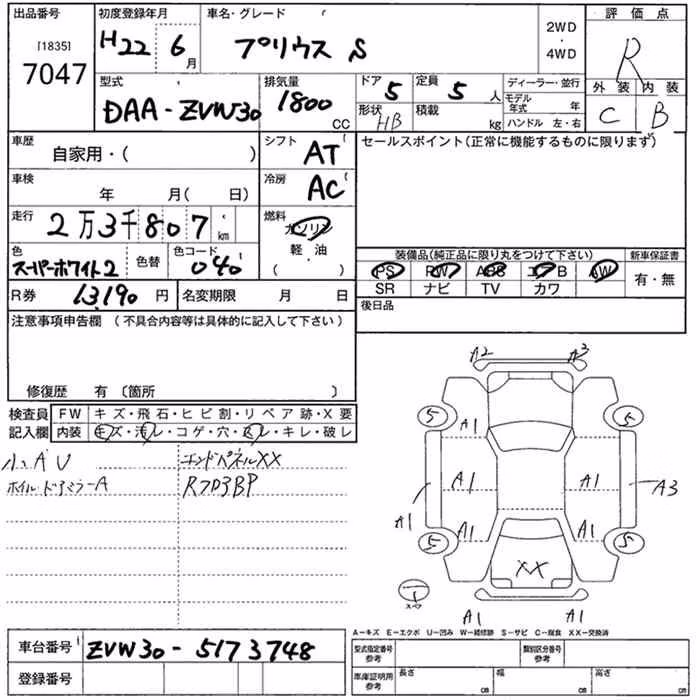 出品番号 [1835] 7047
初度登録年月 H22 6月
車名・グレード プリウス S
2WD・4WD
評価点 R
型式 DAA-ZVW30
排気量 1800 CC
ドア 5
形状 HB
定員 5人
積載 kg
ディーラー・並行
モデル年式 年
ハンドル 左・右
外装 C
内装 B
車歴 自家用・( )
シフト AT
セールスポイント(正常に機能するものに限ります)
車検 年 月( 日)
冷房 AC
走行 2万3千807km
燃料 ガソリン 軽・油 ( )
色 スーパーホワイト2
色替
色コード 040
装備品(純正品に限り丸をつけて下さい)
PS PW ABS エアB AW
SR ナビ TV カワ
新車保証書 有・無
R券 13,190円
名変期限 月 日
後日品
注意事項申告欄 (不具合内容等は具体的に記入して下さい)
修復歴 有 〔箇所 〕
検査員記入欄
FW キズ・飛石・ヒビ割・リペア跡・X要
内装 キズ・汚レ・コゲ・穴・スレ・キレ・破レ
小.AU
エンドパネルXX
ホイル・ドアミラーA
RフロアBP
A2 A2
5 5
A1
A1 A1 A3
A1
A1 A1
5 5
XX
1 スペア
A1 A1
A−キズ E−エクボ U−凹み W−補修跡 S−サビ C−腐食 XX−交換済
車台番号 ZVW30-5173748
登録番号
型式指定番号 参考
類別区分番号
車庫証明用 参考
長さ cm 幅 cm 高さ cm